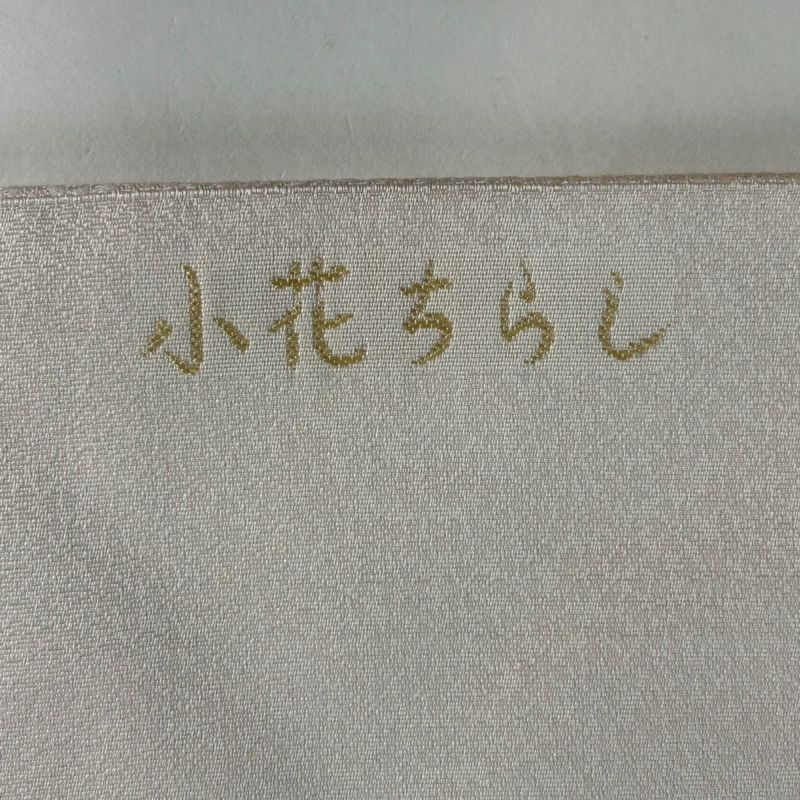 小花ちらし